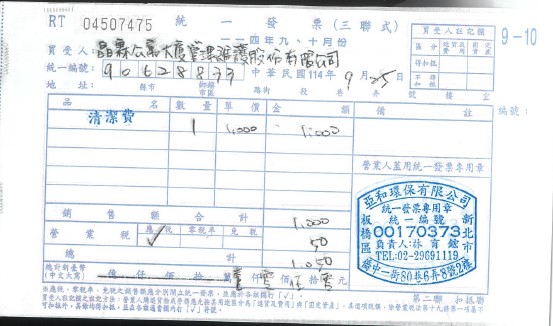 RT 04507475 統一發票(三聯式)
一一四年九、十月份
9-10
買受人註記欄
區分 進貨及費用 固定資產
得扣抵
不得扣抵
買受人:晶霖公寓大廈管理維護股份有限公司
統一編號:90628833 中華民國114年9月25日
地址: 縣市 鄉鎮市區 路街 段 巷 弄 號
編號:
品名 數量 單價 金額 備註
清潔費 1 1,000 1,000
營業人蓋用統一發票專用章
亞和環保有限公司
統一發票專用章
新北市
板橋區
統一編號
00170373
負責人:林育館
TEL:02-29691119
銷售額合計 1,000
營業稅 應稅 ✓ 零稅率 免稅 50
總計 1,050
總計新臺幣(中文大寫) 億 仟 佰 拾 萬 壹仟零佰伍拾零元
※應稅、零稅率、免稅之銷售額應分別開立統一發票,並應於各該欄打「✓」。
第二聯 扣抵聯